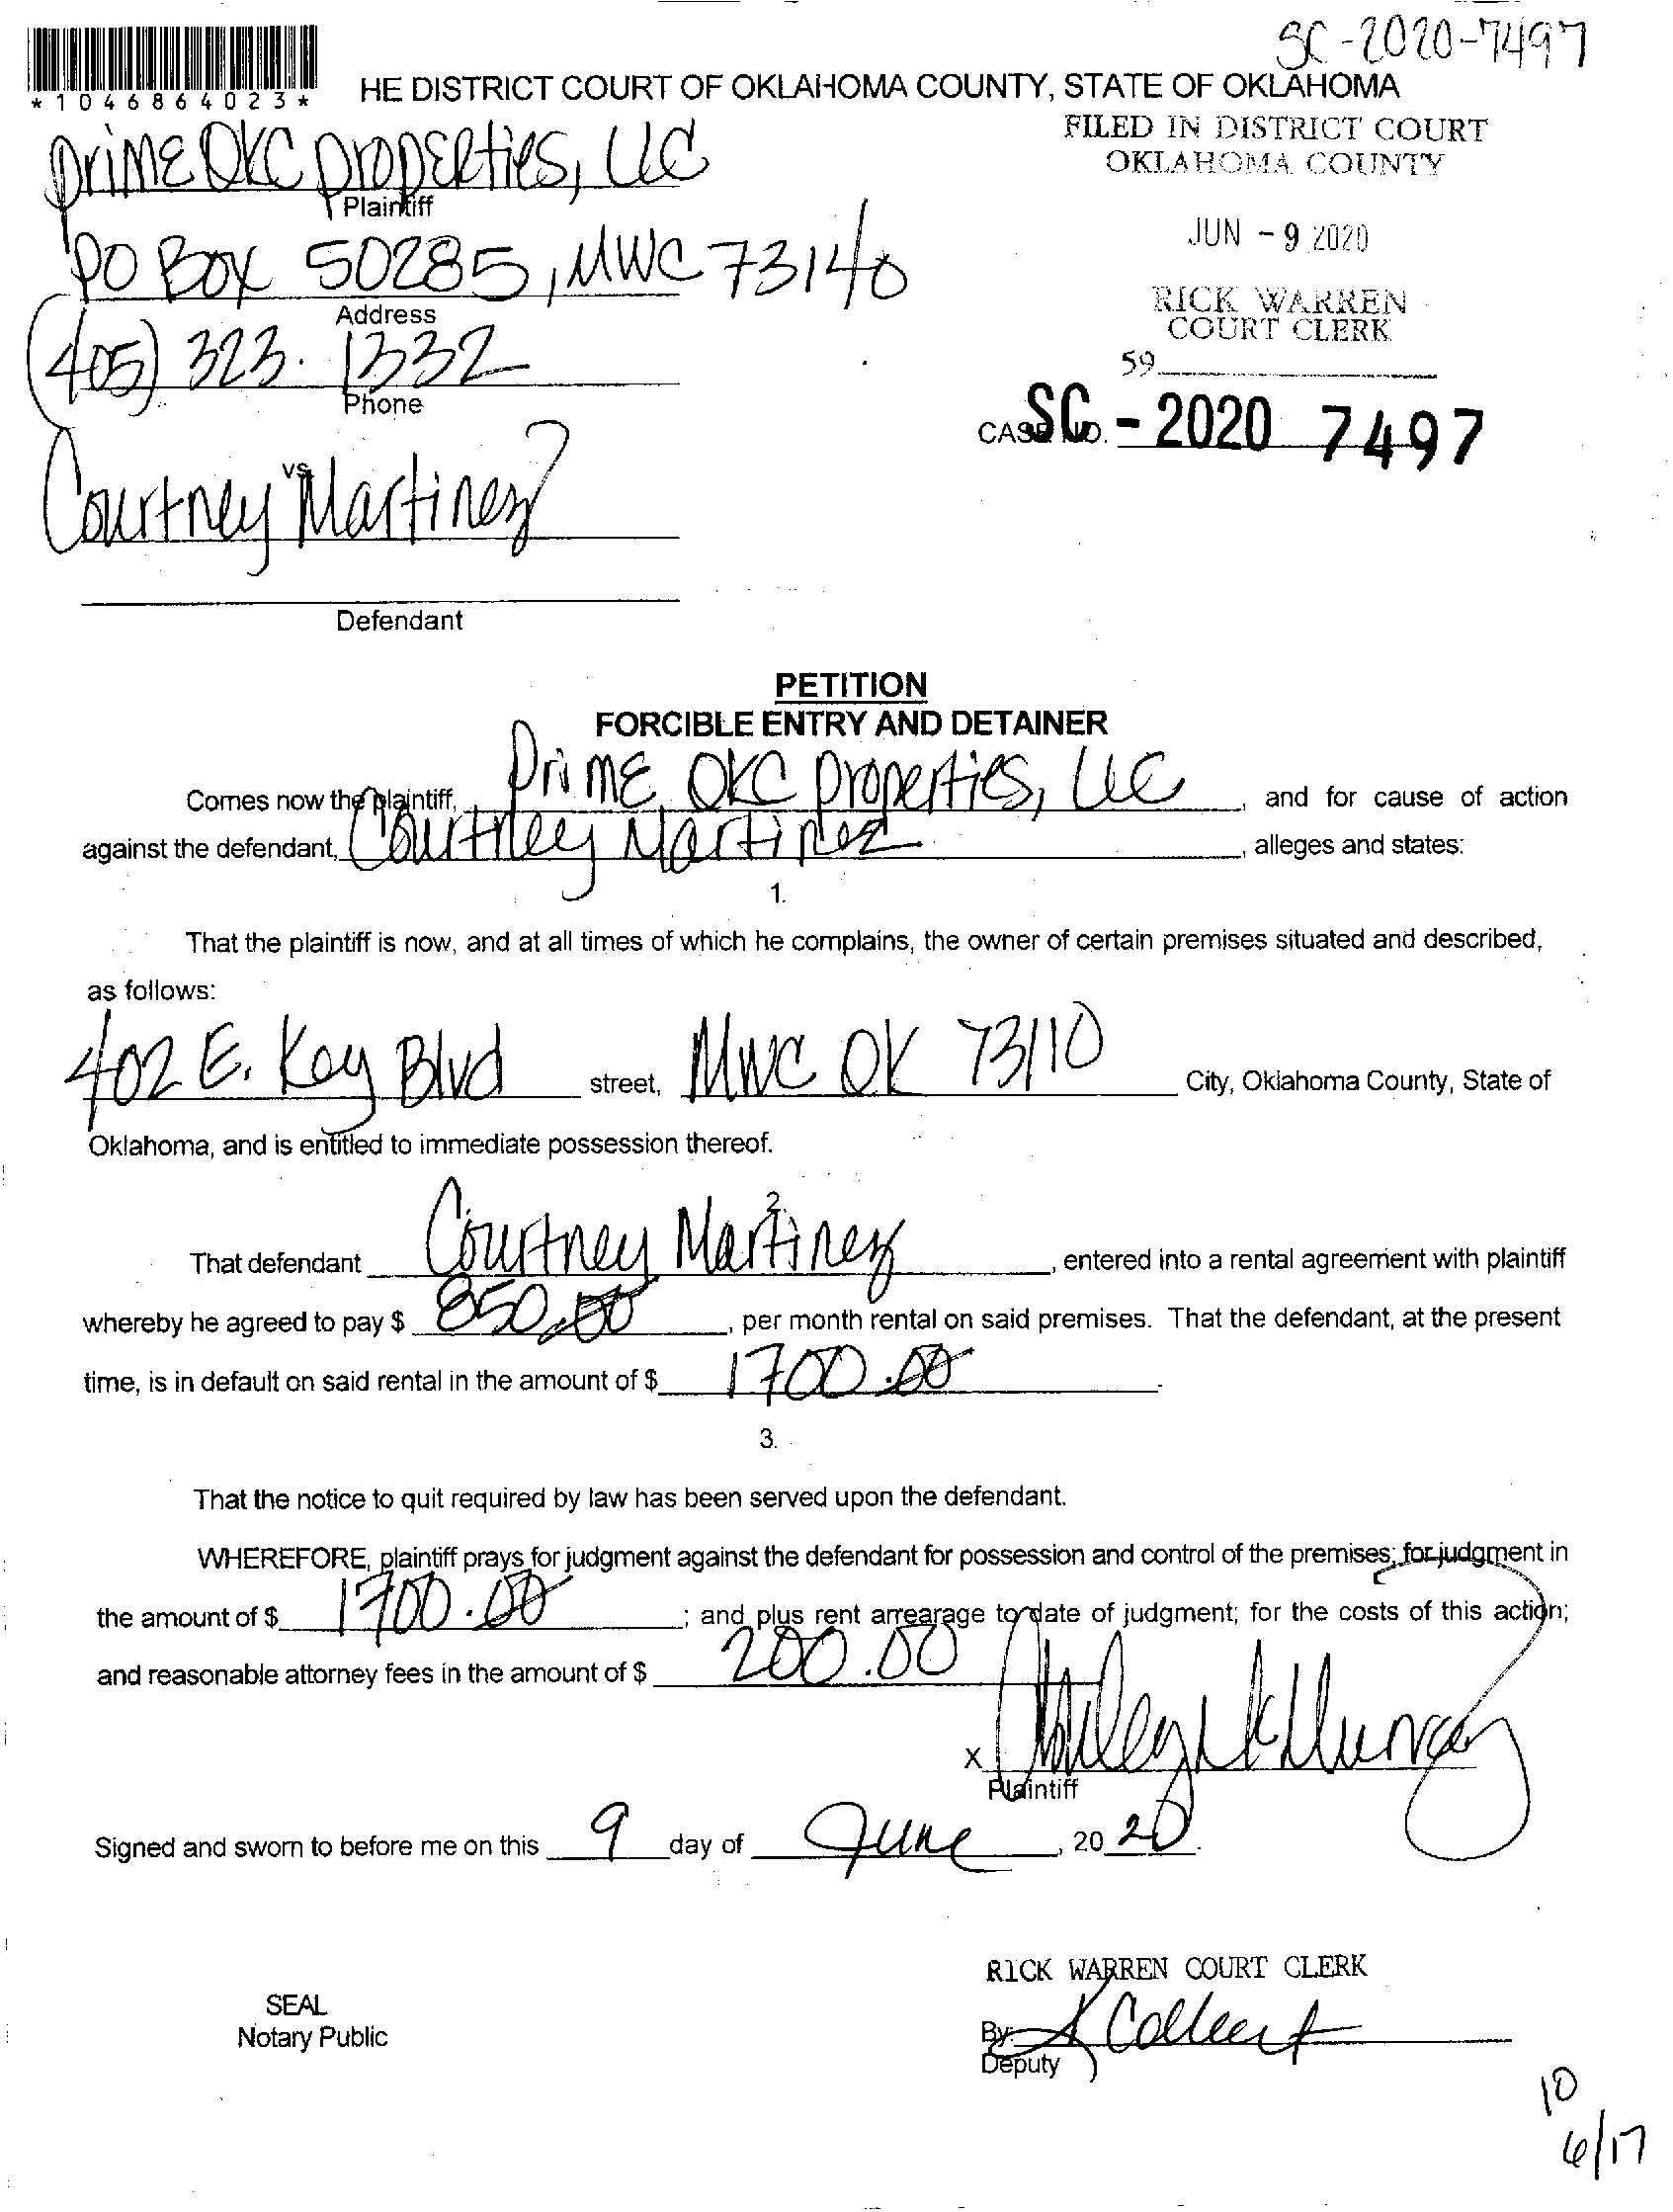 SC-2020-7497
*1046864023*
HE DISTRICT COURT OF OKLAHOMA COUNTY, STATE OF OKLAHOMA
FILED IN DISTRICT COURT
OKLAHOMA COUNTY
JUN - 9 2020
RICK WARREN
COURT CLERK
59
Prime OKC Properties, LLC
Plaintiff
PO Box 50285, MWC 73140
Address
(405) 323.1332
Phone
CASE NO. SC - 2020 7497
vs
Courtney Martinez
Defendant
PETITION
FORCIBLE ENTRY AND DETAINER
Comes now the plaintiff, Prime OKC Properties, LLC, and for cause of action
against the defendant, Courtney Martinez, alleges and states:
1.
That the plaintiff is now, and at all times of which he complains, the owner of certain premises situated and described,
as follows:
402 E. Key Blvd street, MWC OK 73110 City, Oklahoma County, State of
Oklahoma, and is entitled to immediate possession thereof.
2.
That defendant Courtney Martinez, entered into a rental agreement with plaintiff
whereby he agreed to pay $ 850.00, per month rental on said premises. That the defendant, at the present
time, is in default on said rental in the amount of $ 1700.00.
3.
That the notice to quit required by law has been served upon the defendant.
WHEREFORE, plaintiff prays for judgment against the defendant for possession and control of the premises; for judgment in
the amount of $ 1700.00; and plus rent arrearage to date of judgment; for the costs of this action;
and reasonable attorney fees in the amount of $ 200.00
X
Plaintiff
Signed and sworn to before me on this 9 day of June, 2020.
RICK WARREN COURT CLERK
SEAL
Notary Public
By: K Collect
Deputy
10
6/17